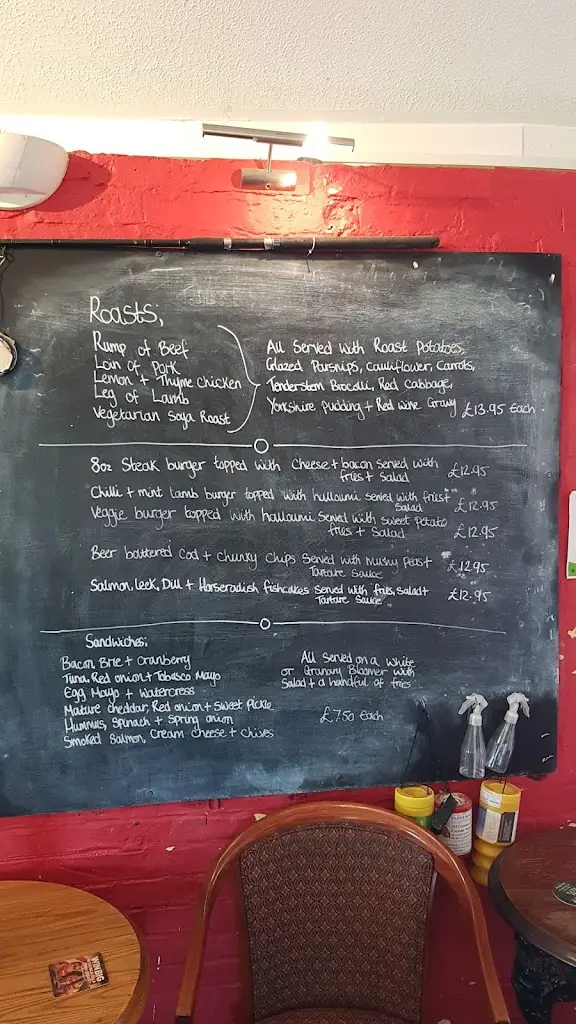 Roasts;
Rump of Beef
Loin of Pork
Lemon + Thyme chicken
Leg of Lamb
Vegetarian Soya Roast
All Served with Roast Potatoes,
Glazed Parsnips, cauliflower, Carrots,
Tenderstem Brocolli, Red cabbage,
Yorkshire pudding + Red wine Gravy £13.95 Each
8oz Steak burger topped with cheese + bacon served with
fries + Salad £12.95
Chilli + mint Lamb burger topped with halloumi served with fries +
Salad £12.95
Veggie burger topped with halloumi served with sweet potato
fries + Salad £12.95
Beer battered Cod + chunky chips served with mushy peas +
Tartare Sauce £12.95
Salmon, leek, Dill + Horseradish fishcakes served with fries, salad +
Tartare Sauce £12.95
Sandwiches;
Bacon, Brie + Cranberry
Tuna, Red onion + Tobasco Mayo
Egg Mayo + Watercress
Mature cheddar, Red onion + Sweet Pickle
Hummus, Spinach + Spring onion
Smoked Salmon, Cream cheese + chives
All served on a white
or Granary Bloomer with
Salad + a handful of fries
£7.50 each
WIN BIG